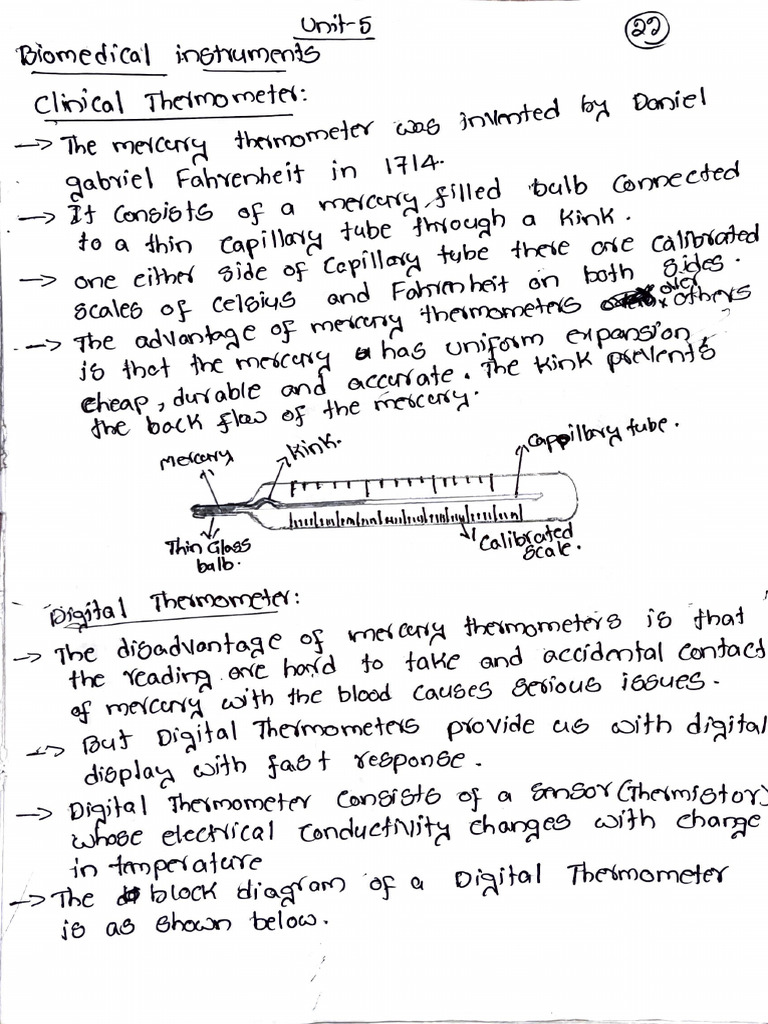 Unit-5
22
Biomedical instruments
Clinical Thermometer:
→ The mercury thermometer was invented by Daniel
gabriel Fahrenheit in 1714.
→ It consists of a mercury filled bulb connected
to a thin capillary tube through a kink.
→ one either side of capillary tube there are calibrated
scales of celsius and Fahrenheit on both sides.
→ The advantage of mercury thermometers over others
is that the mercury has uniform expansion,
cheap, durable and accurate. The kink prevents
the back flow of the mercury.
mercury
kink.
cappillary tube.
Thin Glass
balb.
Calibrated
scale.
Digital Thermometer:
→ The disadvantage of mercury thermometers is that
the reading are hard to take and accidental contact
of mercury with the blood causes serious issues.
→ But Digital Thermometers provide us with digital
display with fast response.
→ Digital Thermometer consists of a sensor (Thermistor)
whose electrical conductivity changes with change
in temperature
→ The block diagram of a Digital Thermometer
is as shown below.